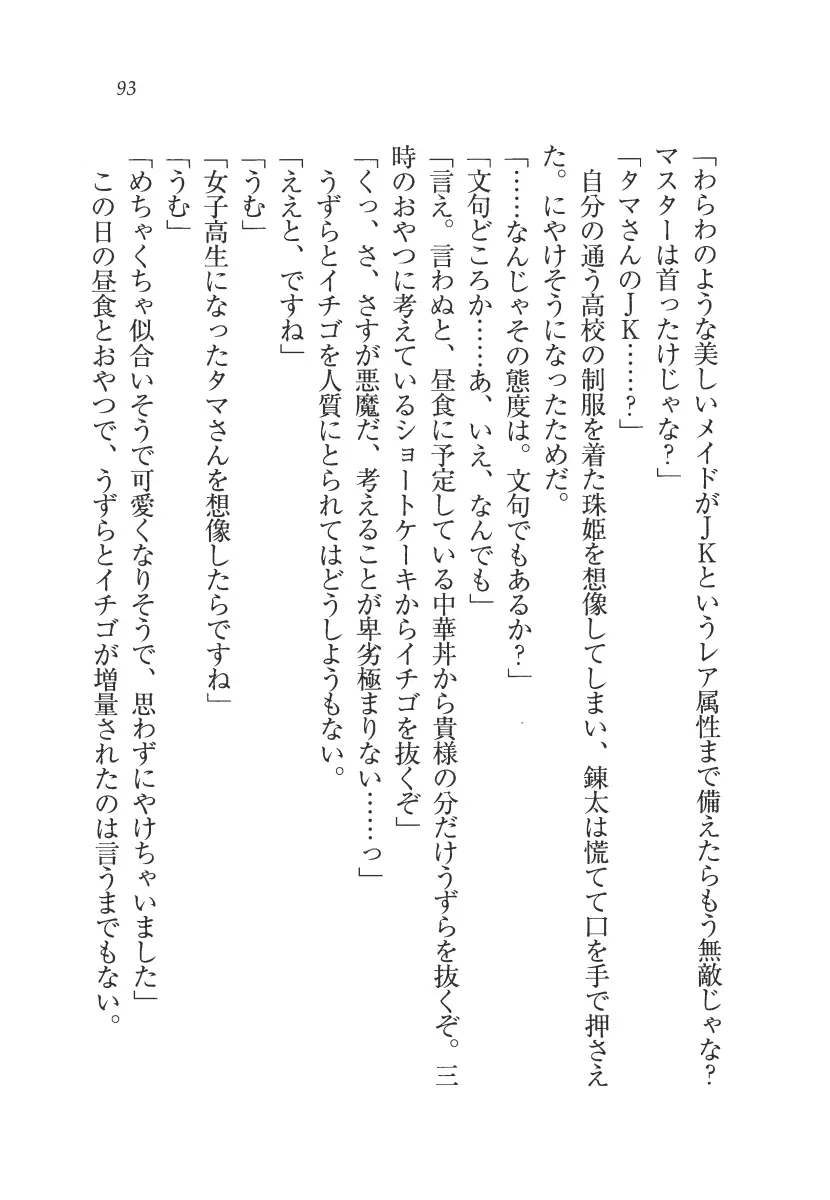 93
「わらわのような美しいメイドがJKというレア属性まで備えたらもう無敵じゃな?
マスターは首ったけじゃな?」
「タマさんのJK……?」
自分の通う高校の制服を着た珠姫を想像してしまい、錬太は慌てて口を手で押さえ
た。にやけそうになったためだ。
「……なんじゃその態度は。文句でもあるか?」
「文句どころか……あ、いえ、なんでも」
「言え。言わぬと、昼食に予定している中華丼から貴様の分だけうずらを抜くぞ。三
時のおやつに考えているショートケーキからイチゴを抜くぞ」
「くっ、さ、さすが悪魔だ、考えることが卑劣極まりない……っ」
うずらとイチゴを人質にとられてはどうしようもない。
「ええと、ですね」
「うむ」
「女子高生になったタマさんを想像したらですね」
「うむ」
「めちゃくちゃ似合いそうで可愛くなりそうで、思わずにやけちゃいました」
この日の昼食とおやつで、うずらとイチゴが増量されたのは言うまでもない。